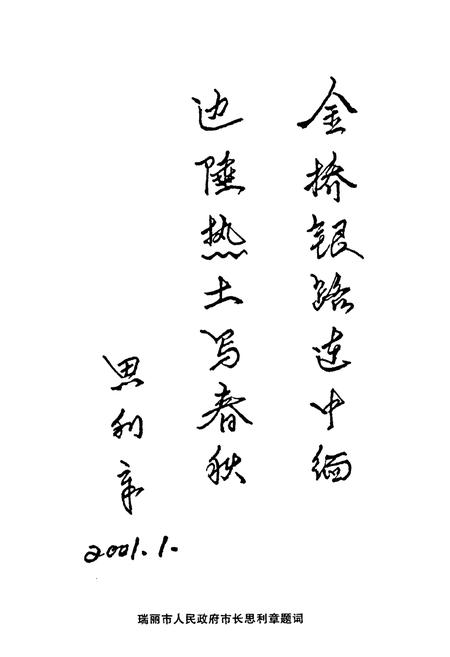 金桥银路连中缅
边陲热土写春秋
思利章
2001.1.
瑞丽市人民政府市长思利章题词